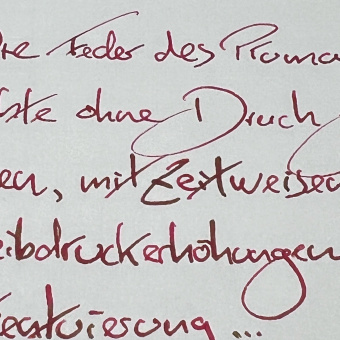 Die Feder des Proma
ste ohne Druck
en, mit zeitweisen
eibdruckerhöhungen
ierung ...